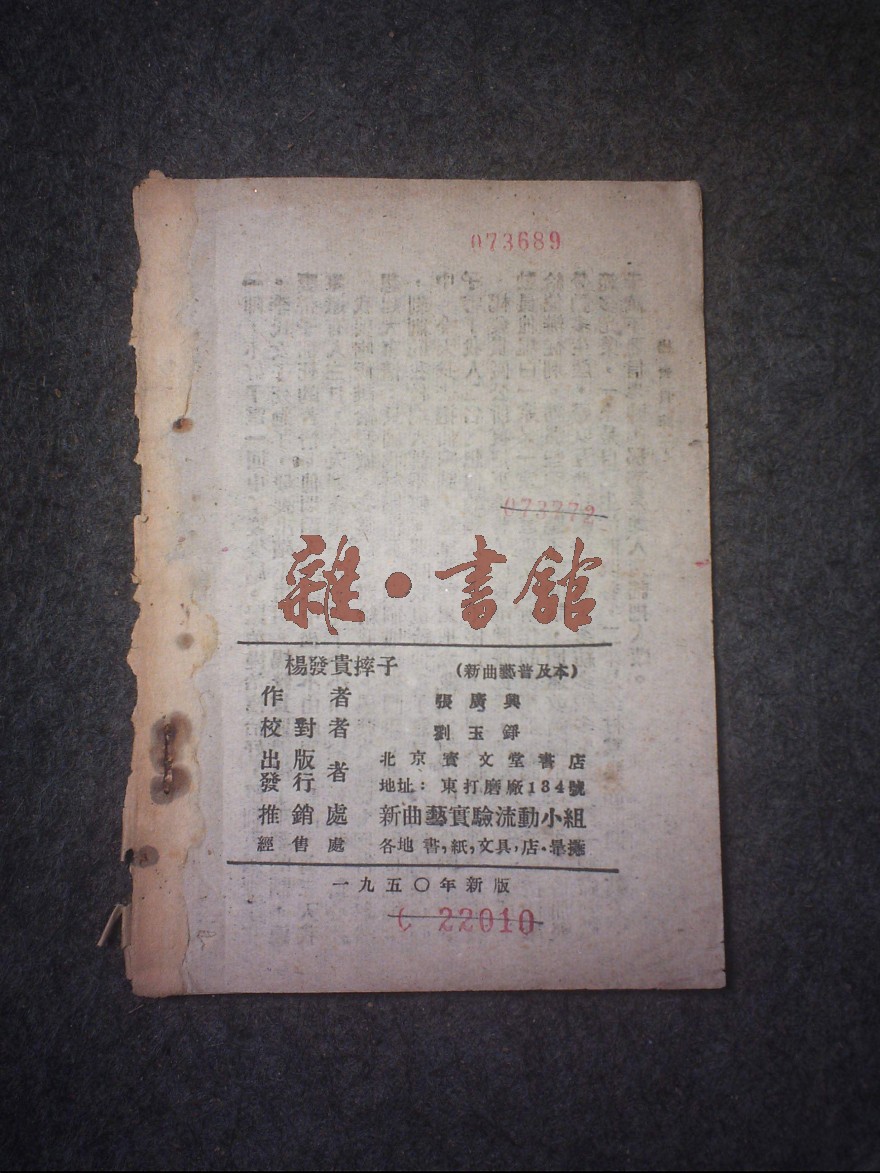 073689
073772
雜·書館
楊發貴摔子 (新曲藝普及本)
作者 張廣興
校對者 劉玉錚
出版發行者 北京寶文堂書店
地址：東打磨廠134號
推銷處 新曲藝實驗流動小組
經售處 各地書,紙,文具,店·
一九五〇年新版
C 22010